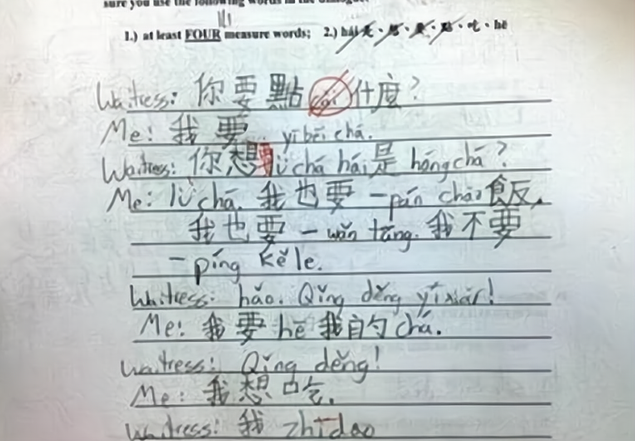 sure you use the following words in the dialogue.
1.) at least FOUR measure words; 2.) hái 是、想、要、點、吃、hē
Waitress: 你要點 什麼?
Me: 我要 yī bēi chá.
Waitress: 你想要lǜ chá hái是 hóng chá?
Me: lǜ chá. 我也要一pán chǎo飯,
我也要一wǎn tāng. 我不要
一píng kělè.
Waitress: hǎo. Qǐng děng yīxiàr!
Me: 我要 hē 我自勺 chá.
Waitress: Qǐng děng!
Me: 我想口吃.
Waitress: 我 zhīdao